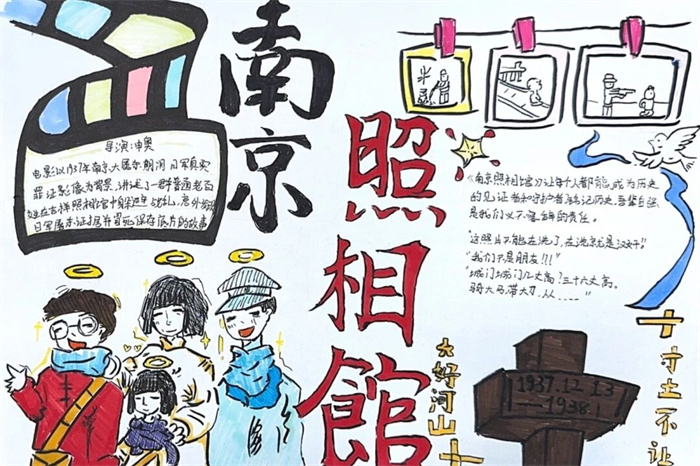 南京
照相館
导演:申奥
电影以1937年南京大屠杀期间日军真实
罪证影像为背景,讲述了一群普通老百
姓在吉祥照相馆中躲避战乱,意外
日军屠杀证据并冒死保存底片的故事
《南京照相馆》让每个人都能成为历史
的见证者和守护者铭记历史,吾辈自强
是我们义不容辞的责任。
"这照片不能在洗了,在洗就是汉奸"
"我们不是朋友!!!"
"城门城门几丈高?三十六丈高。
骑大马带大刀,从……"
大好河山
寸土不让
1937.12.13
—1938.1